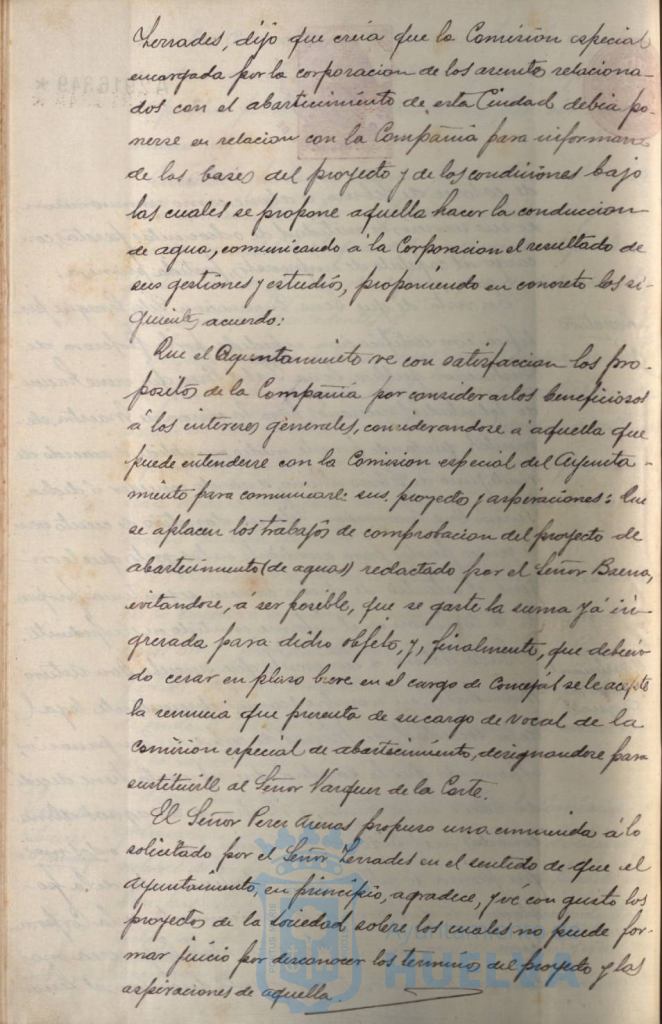 Terrades, dijo que creia que la Comision especial
encargada por la corporacion de los asuntos relaciona-
dos con el abastecimiento de esta Ciudad debia po-
nerse en relacion con la Compañia para informarse
de las bases del proyecto y de las condiciones bajo
las cuales se propone aquella hacer la conduccion
de agua, comunicando á la Corporacion el resultado de
sus gestiones y estudios, proponiendo en concreto los si-
guientes acuerdo:
Que el Ayuntamiento ve con satisfaccion los pro-
positos de la Compañia por considerarlos beneficiosos
á los intereses generales, considerandose á aquella que
puede entenderse con la Comision especial del Ayunta-
miento para comunicarle sus proyecto y aspiraciones: Que
se aplacen los trabajos de comprobacion del proyecto de
abastecimiento (de aguas) redactado por el Señor
evitandose, á ser posible, que se gaste la suma yá in-
gresada para dicho objeto, y, finalmente, que debien-
do cesar en plazo breve en el cargo de Concejál se le acepte
la renuncia que presenta de su cargo de vocal de la
comision especial de abastecimiento, designandose para
sustituirle al Señor Vazquez de la Corte.
El Señor Perez Arenas propuso una enmienda á lo
solicitado por el Señor Terrades en el sentido de que el
Ayuntamiento, en principio, agradece, y vé con gusto los
proyectos de la sociedad sobre los cuales no puede for-
mar juicio por desconocer los termino del proyecto y las
aspiraciones de aquella.
HUELVA